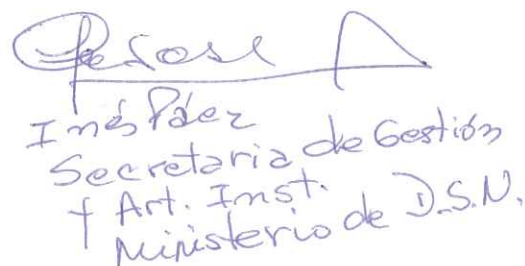 Inés Páez
Secretaria de Gestión
y Art. Inst.
Ministerio de D.S.N.